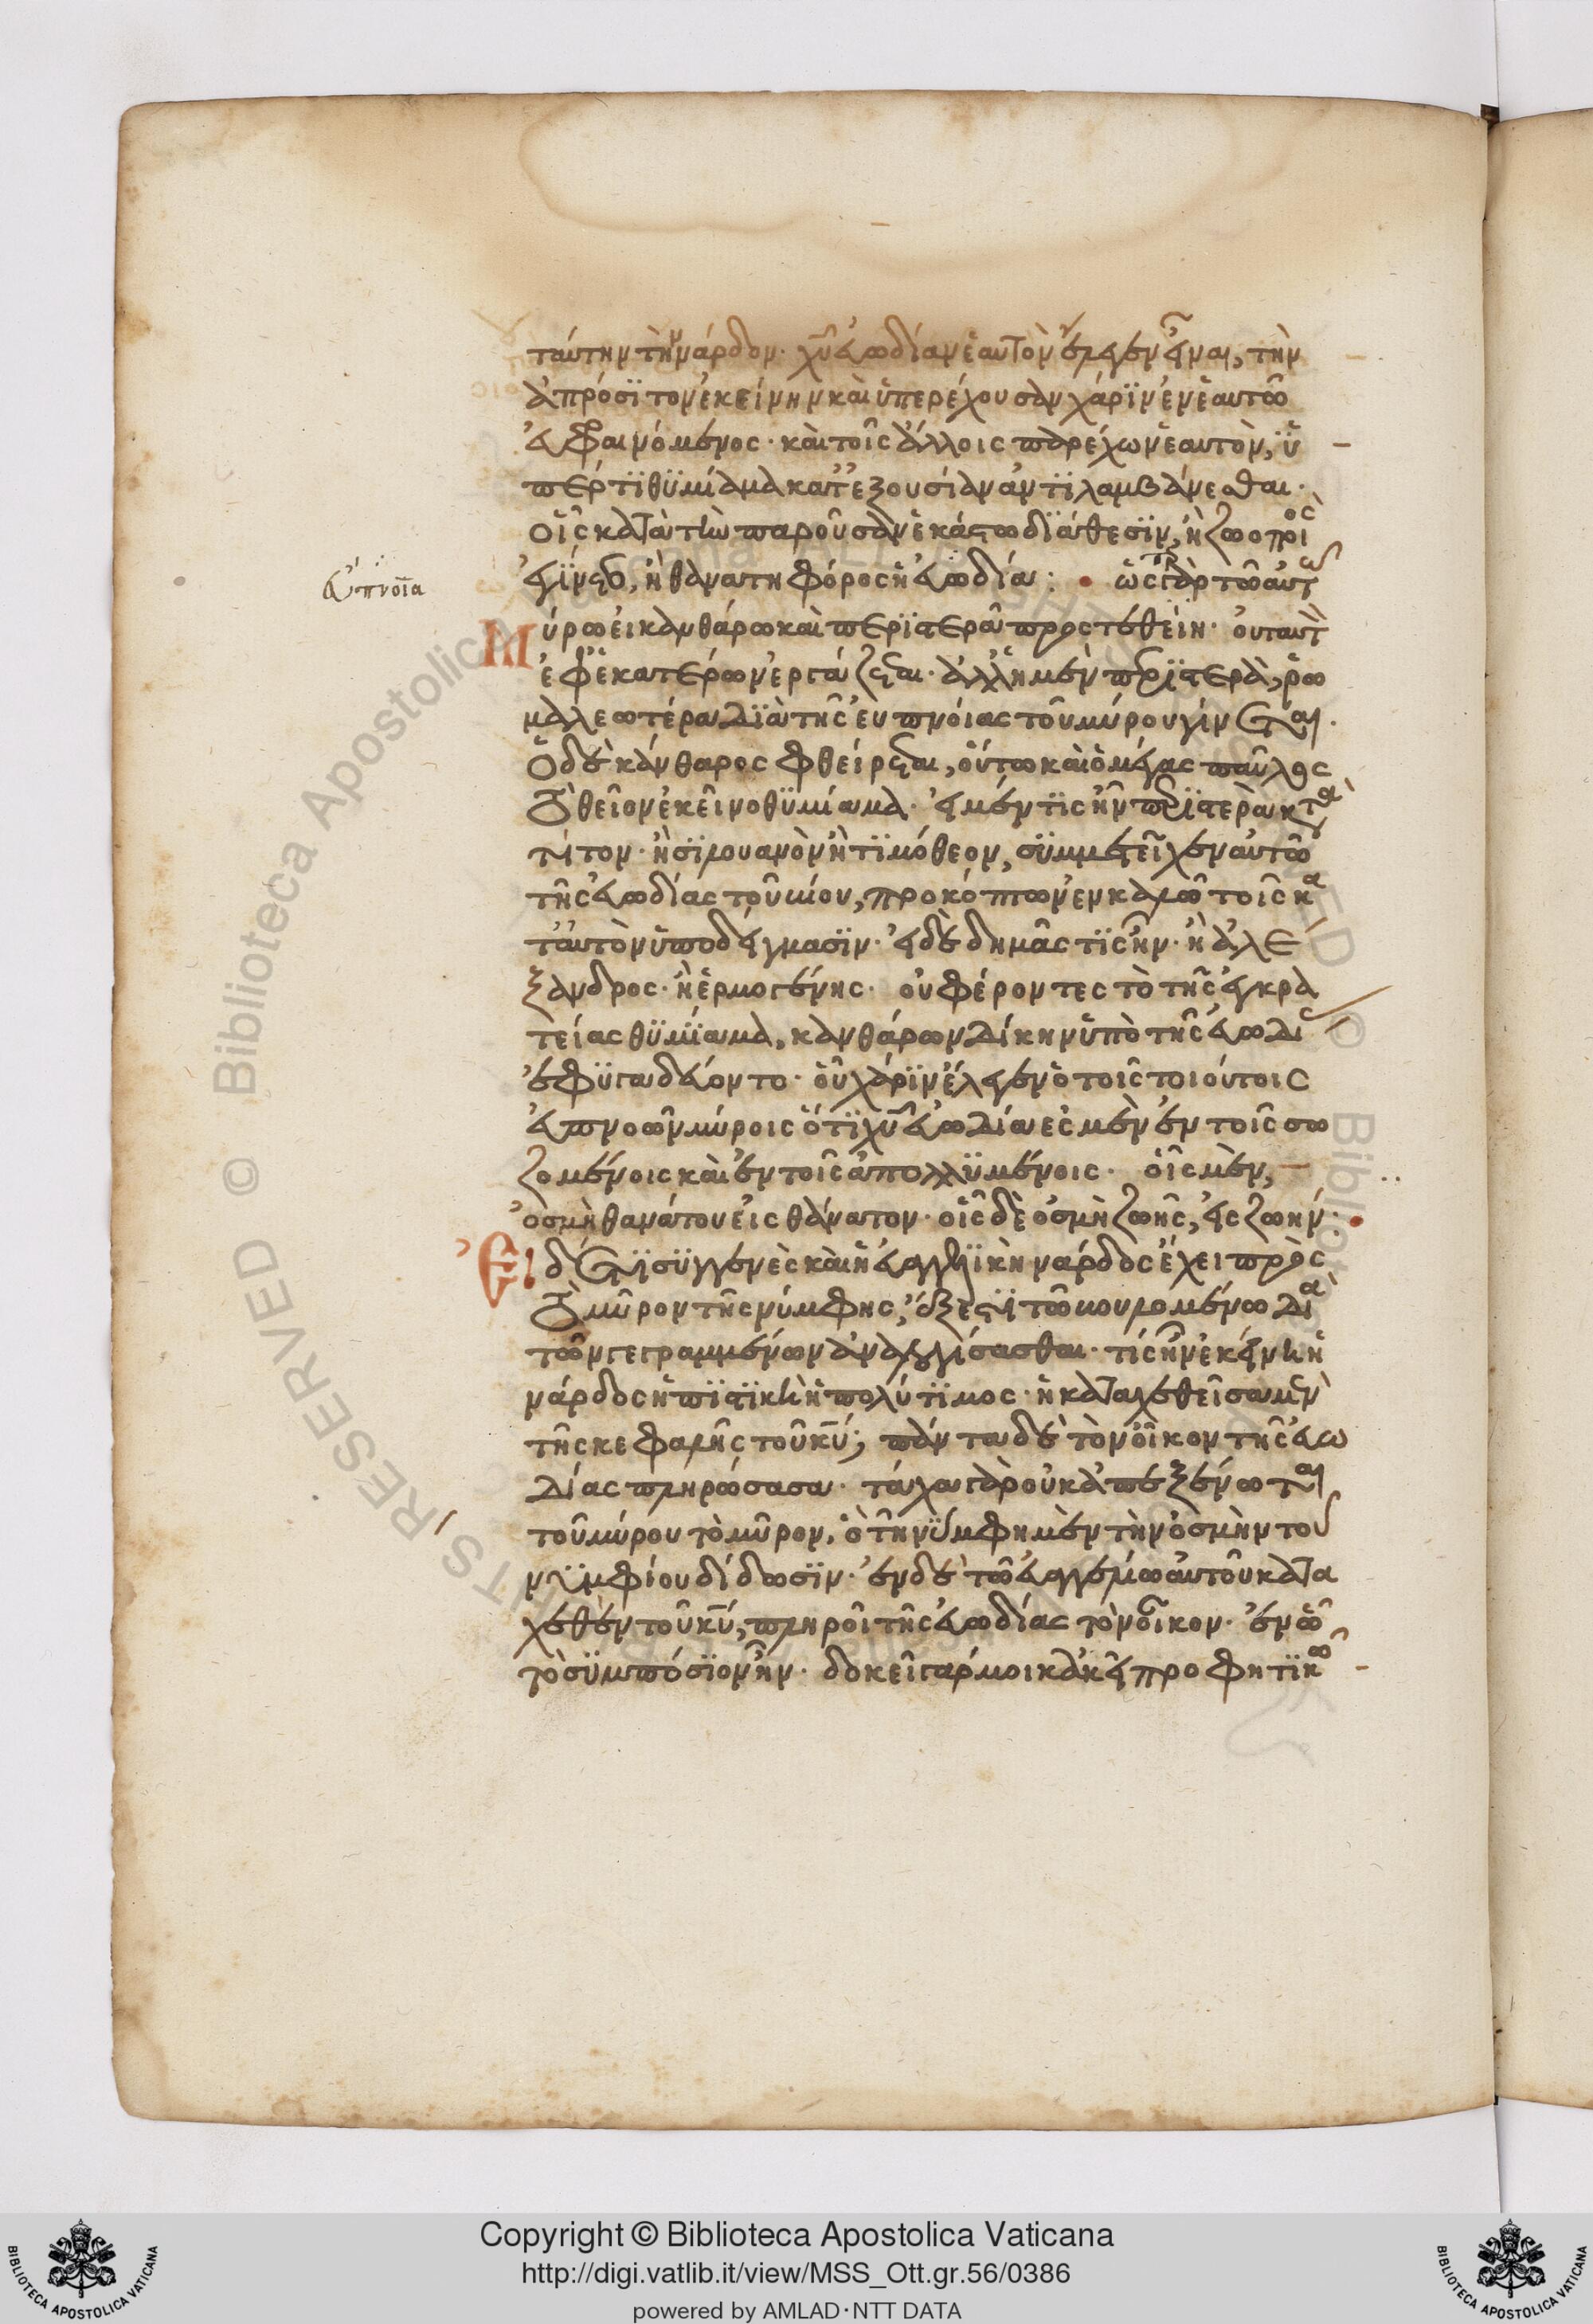 ταύτην τὴν νάρδον· χυ εὐωδίαν ἑαυτὸν ἔλεγεν εἶναι, τὴν
ἀπρόσϊτον ἐκείνην καὶ ὑπερέχουσαν χάρϊν ἐν ἑαυτῶ
εὐφραινόμενος· καὶ τοῖς ἄλλοις παρέχων ἑαυτὸν, ὥ
περ τϊ θϋμίαμα κατ' ἐξουσίαν ἀντϊλαμβάνεσθαι·
οἷς κατὰ τὴν παροῦσαν ἑκάστω διάθεσϊν, ἢ ζωοποιὸς
ἐγίνετο, ἢ θανατηφόρος ἡ εὐωδία: ὡς γὰρ τῶ αὐτῶ
εὔπνοια
μύρω εἰ κανθάρω καὶ περϊστερᾶ προστεθείη· οὐ ταὐτὸ
ἐφ' ἑκατέρων ἐργάζεται· ἀλλ' ἡ μὲν περϊστερὰ, ῥω
μαλεωτέρα διὰ τῆς εὐπνοίας τοῦ μύρου γίνεται·
ὁ δὲ κάνθαρος φθείρεται, οὕτω καὶ ὁ μέγας παῦλος
τὸ θεῖον ἐκεῖνο θϋμίαμα· εἰ μέν τϊς ἦν περϊστερὰ κατὰ
τίτον· ἢ σϊλουανὸν ἢ τϊμόθεον, σϋμμετεῖχεν αὐτῶ
τῆς εὐωδίας τοῦ μύρου, προκόπτων ἐν καλῶ τοῖς κα
τ' αὐτὸν ὑποδείγμασϊν· εἰ δὲ δημᾶς τϊς ἦν· ἢ ἀλέ
ξανδρος· ἢ ἑρμογένης· οὐ φέροντες τὸ τῆς ἐγκρα
τείας θϋμίαμα, κανθάρων δίκην ὑπὸ τῆς εὐωδίας
ἐφϋγαδεύοντο· οὗ χάρϊν ἔλεγεν ὁ τοῖς τοιούτοις
εὐπνοῶν μύροις ὅτϊ χυ εὐωδία ἐσμὲν ἐν τοῖς σω
ζομένοις καὶ ἐν τοῖς ἀπολλϋμένοις· οἷς μὲν,
ὀσμὴ θανάτου εἰς θάνατον· οἷς δὲ ὀσμὴ ζωῆς, εἰς ζωήν·
Εἰ δέ τϊ σϋγγενὲς καὶ ἡ εὐαγγελϊκὴ νάρδος ἔχει πρὸς
τὸ μῦρον τῆς νύμφης, ἔξεστϊ τῶ βουλομένω διὰ
τῶν γεγραμμένων ἀναλογίσασθαι· τίς ἦν ἐκείνη ἡ
νάρδος ἡ πϊστϊκὴ ἡ πολύτϊμος· ἡ καταχεθεῖσα μὲν
τῆς κεφαλῆς τοῦ κυ; πάντα δὲ τὸν οἶκον τῆς εὐω
δίας πληρώσασα· τάχα γὰρ οὐκ ἀπεξένωται
τοῦ μύρου τὸ μῦρον, ὃ τῆ νύμφη μὲν τὴν ὀσμὴν τοῦ
νϋμφίου δίδωσϊν· ἐν δὲ τῶ εὐαγγελίω αὐτοῦ κατα
χεθὲν τοῦ κυ, πληροῖ τῆς εὐωδίας τὸν οἶκον· ἐν ὧ
τὸ σϋμπόσϊον ἦν· δοκεῖ γάρ μοι κἀκεῖ προφητϊκῶ
Copyright © Biblioteca Apostolica Vaticana
http://digi.vatlib.it/view/MSS_Ott.gr.56/0386
powered by AMLAD·NTT DATA